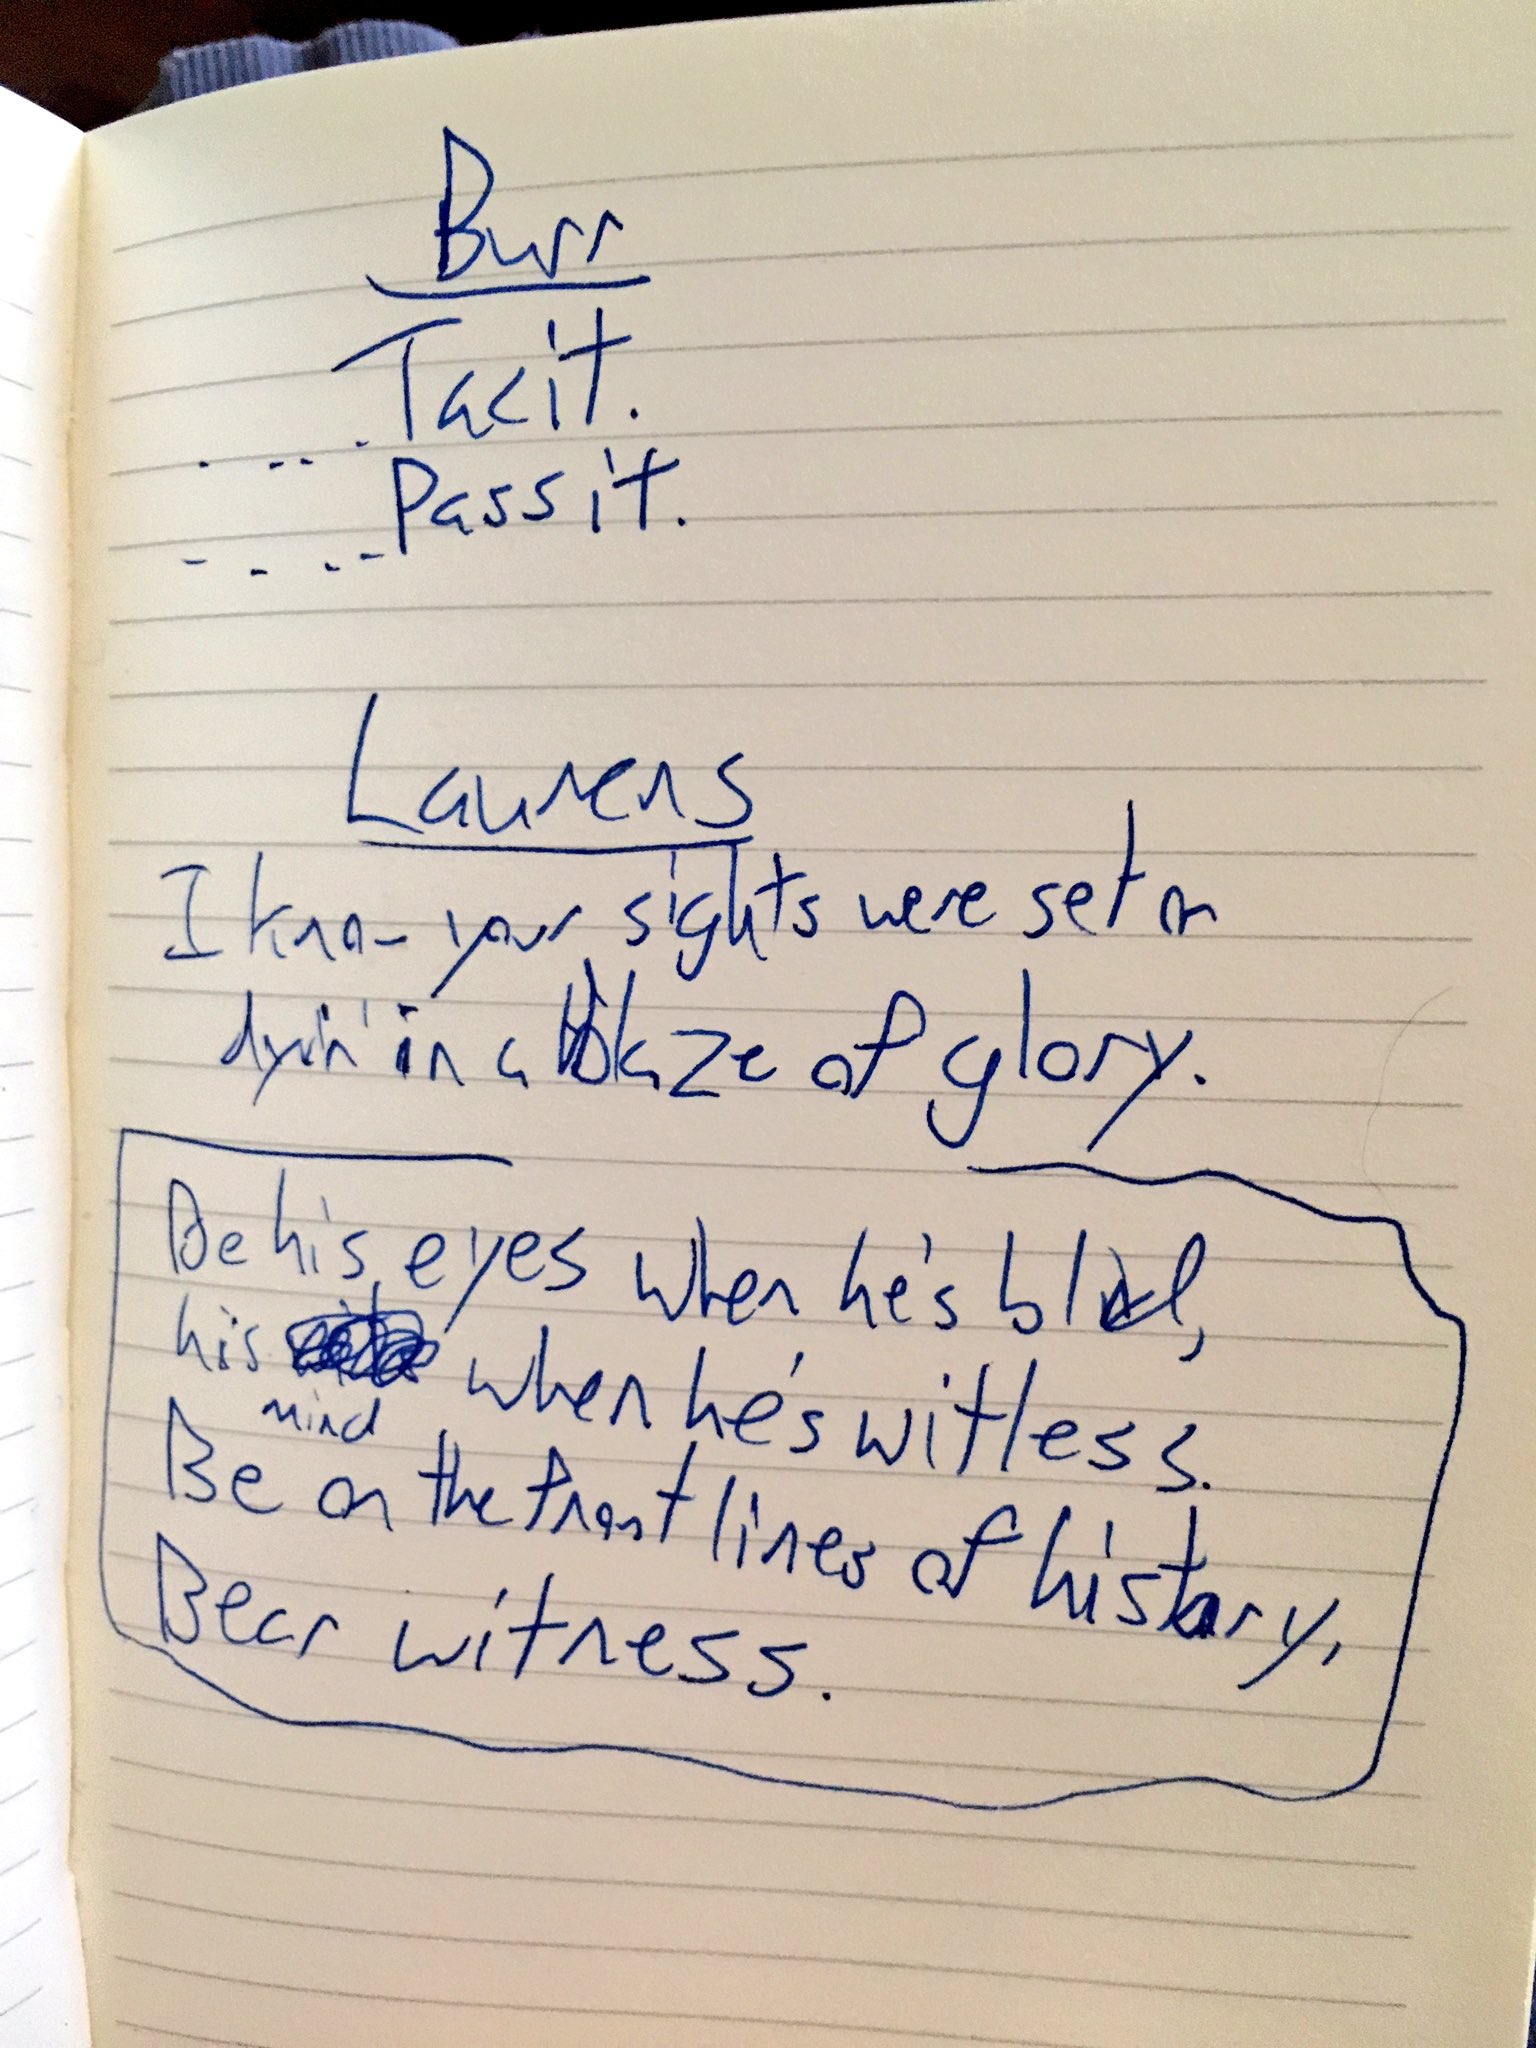 Burr
....Tacit.
....Passit.
Laurens
I know your sights were set on
dyin' in a blaze of glory.
Be his eyes when he's blind,
his mind when he's witless.
Be on the front lines of history,
Bear witness.